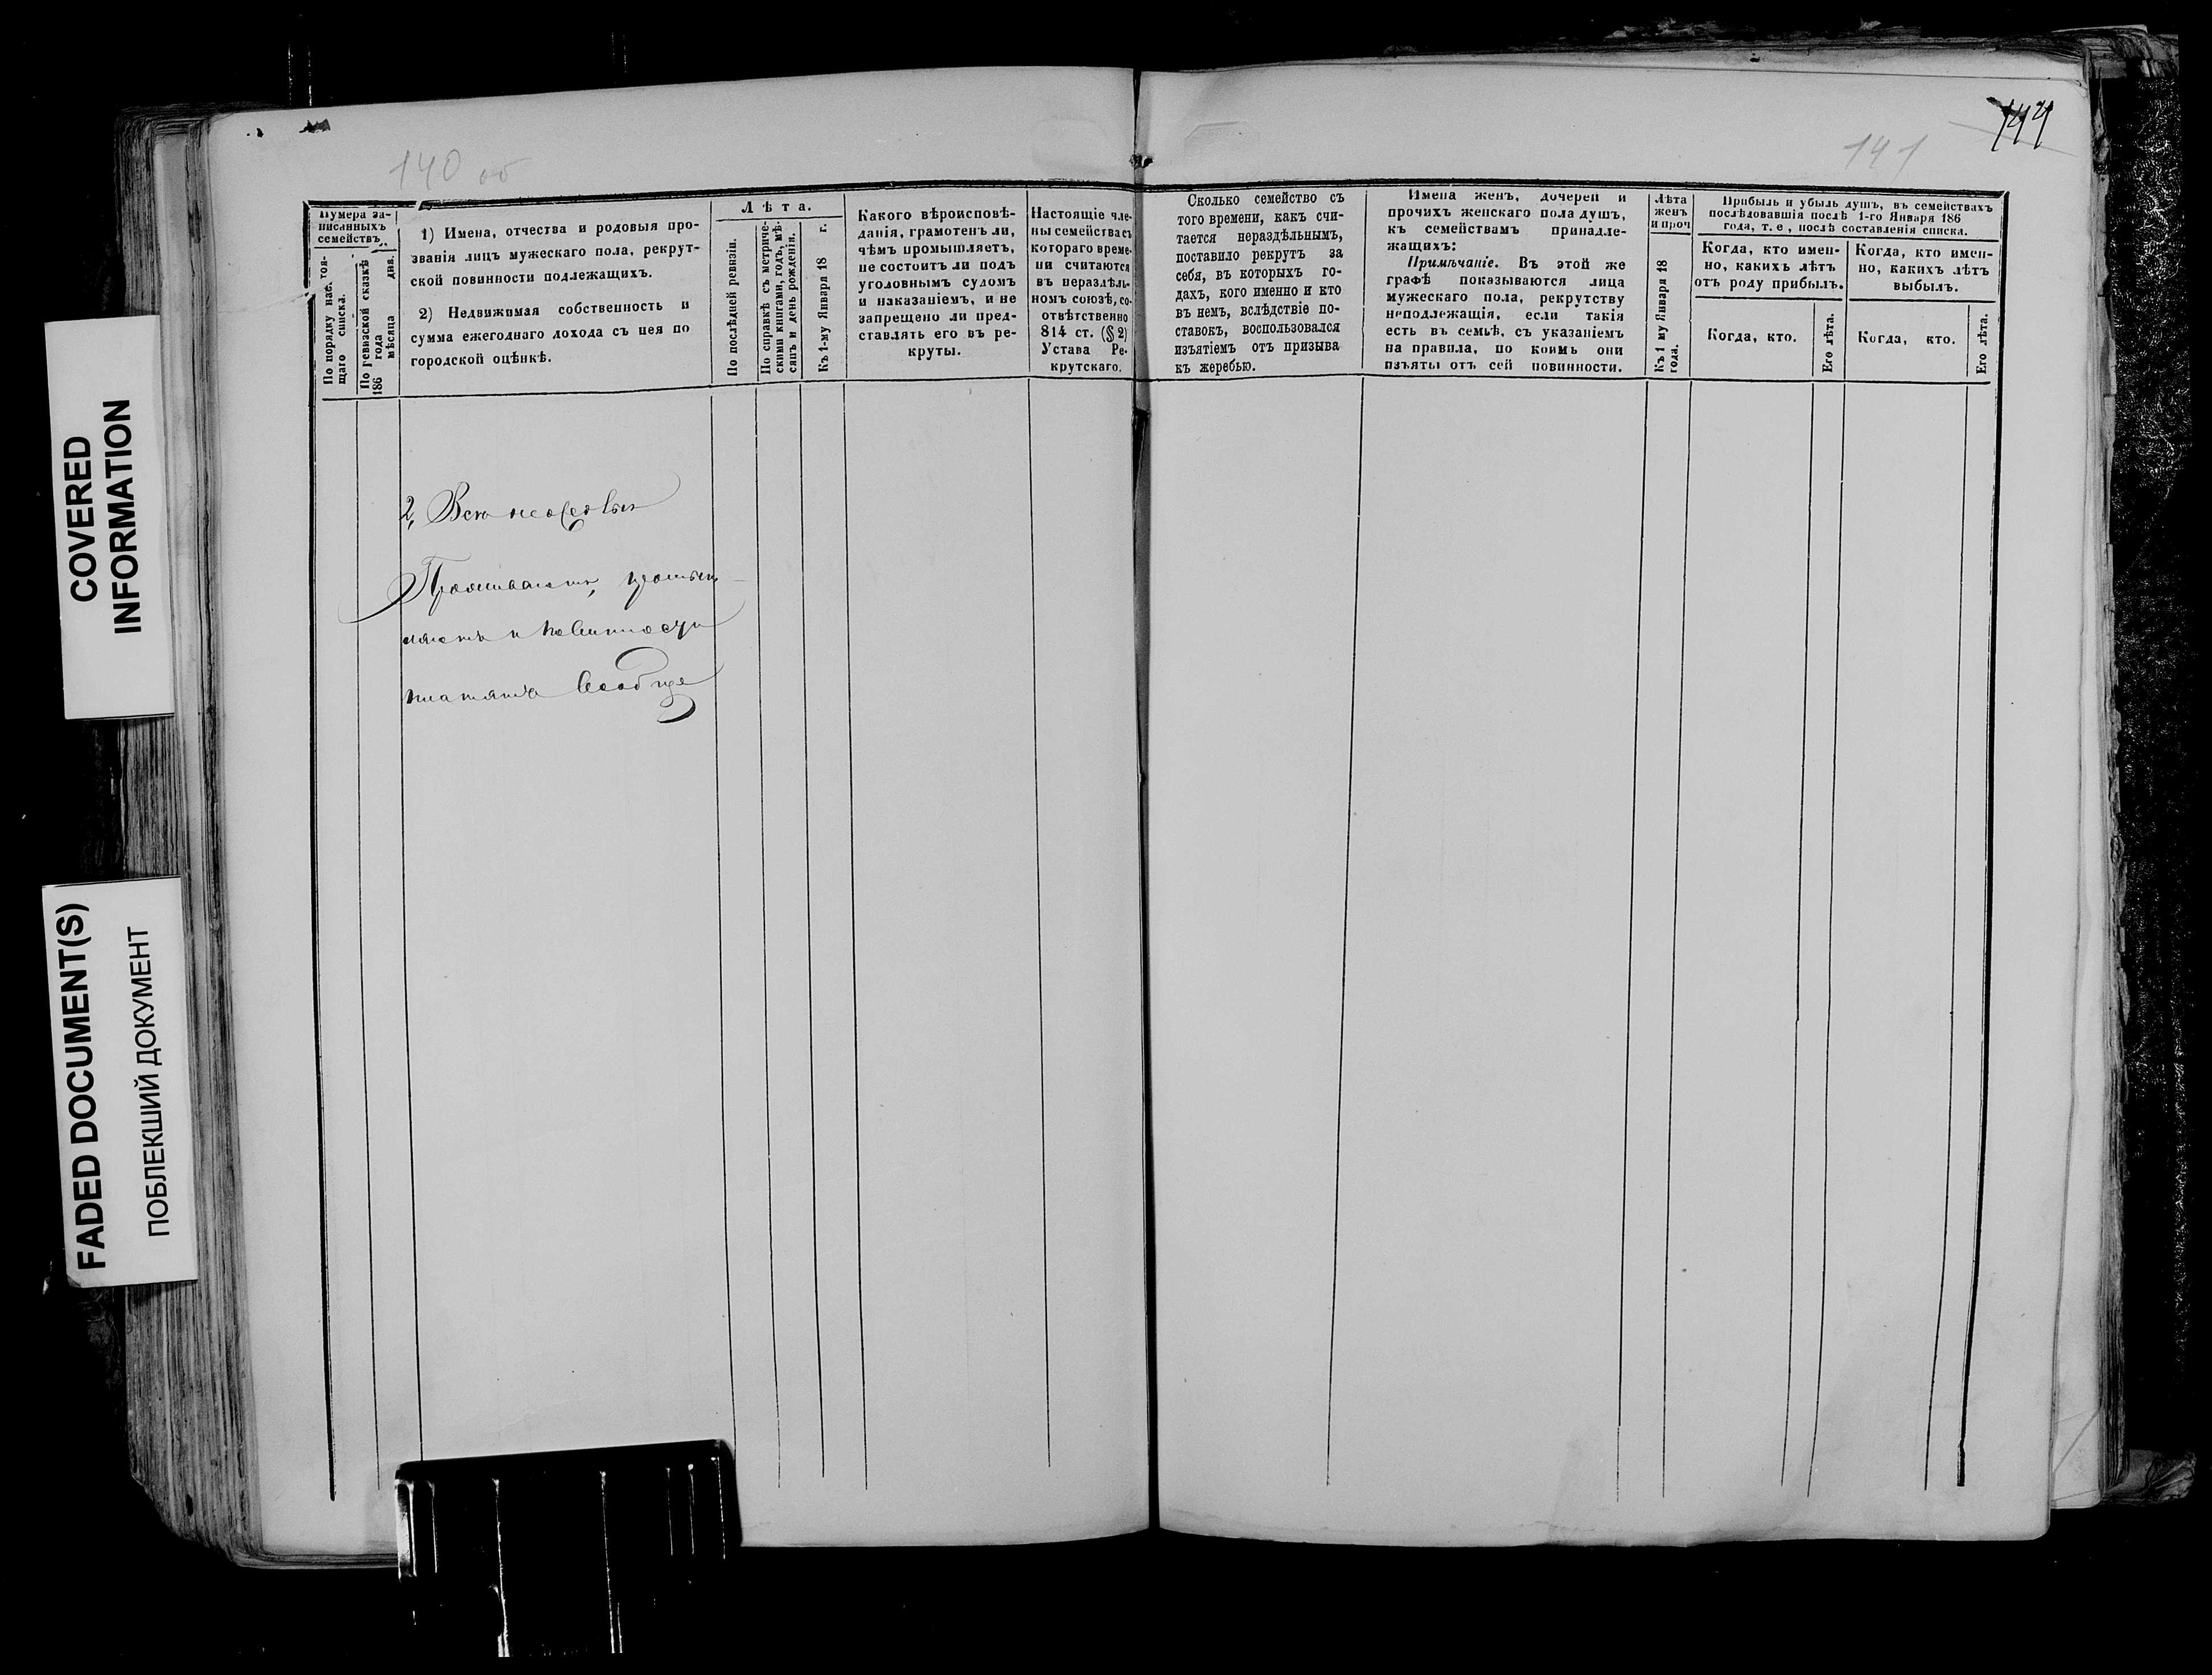 COVERED
INFORMATION
FADED DOCUMENT(S)
ПОБЛЕКШИЙ ДОКУМЕНТ
140 об
Нумера за-
писанныхъ
семействъ
По порядку нас тоя-
щаго списка.
По ревизской сказкѣ
186 года мѣсяца дня.
1) Имена, отчества и родовыя про-
званія лицъ мужескаго пола, рекрут-
ской повинности подлежащихъ.
2) Недвижимая собственность и
сумма ежегоднаго дохода съ нея по
городской оцѣнкѣ.
Лѣта.
По послѣдней ревизіи.
По справкѣ съ метриче-
скими книгами, годъ, мѣ-
сяцъ и день рожденія.
Къ 1-му Января 18 г.
Какого вѣроисповѣ-
данія, грамотенъ ли,
чѣмъ промышляетъ,
не состоитъ ли подъ
уголовнымъ судомъ
и наказаніемъ, и не
запрещено ли пред-
ставлять его въ ре-
круты.
Настоящіе чле-
ны семейства съ
котораго време-
ни считаются
въ нераздѣль-
номъ союзѣ, со-
отвѣтственно
814 ст. (§ 2)
Устава Ре-
крутскаго.
2,
Проживаютъ, промыш-
ляютъ и повинности
платятъ вообще
141
144
Сколько семейство съ
того времени, какъ счи-
тается нераздѣльнымъ,
поставило рекрутъ за
себя, въ которыхъ го-
дахъ, кого именно и кто
въ немъ, вслѣдствіе по-
ставокъ, воспользовался
изъятіемъ отъ призыва
къ жеребью.
Имена женъ, дочерей и
прочихъ женскаго пола душъ,
къ семействамъ принадле-
жащихъ:
Примѣчаніе. Въ этой же
графѣ показываются лица
мужескаго пола, рекрутству
неподлежащія, если такія
есть въ семьѣ, съ указаніемъ
на правила, по коимъ они
изъяты отъ сей повинности.
Лѣта
женъ
и проч
Къ 1 му Января 18
года.
Прибыль и убыль душъ, въ семействахъ
послѣдовавшія послѣ 1-го Января 186
года, т. е, послѣ составленія списка.
Когда, кто имен-
но, какихъ лѣтъ
отъ роду прибылъ.
Когда, кто.
Его лѣта.
Когда, кто имен-
но, какихъ лѣтъ
выбылъ.
Когда, кто.
Его лѣта.